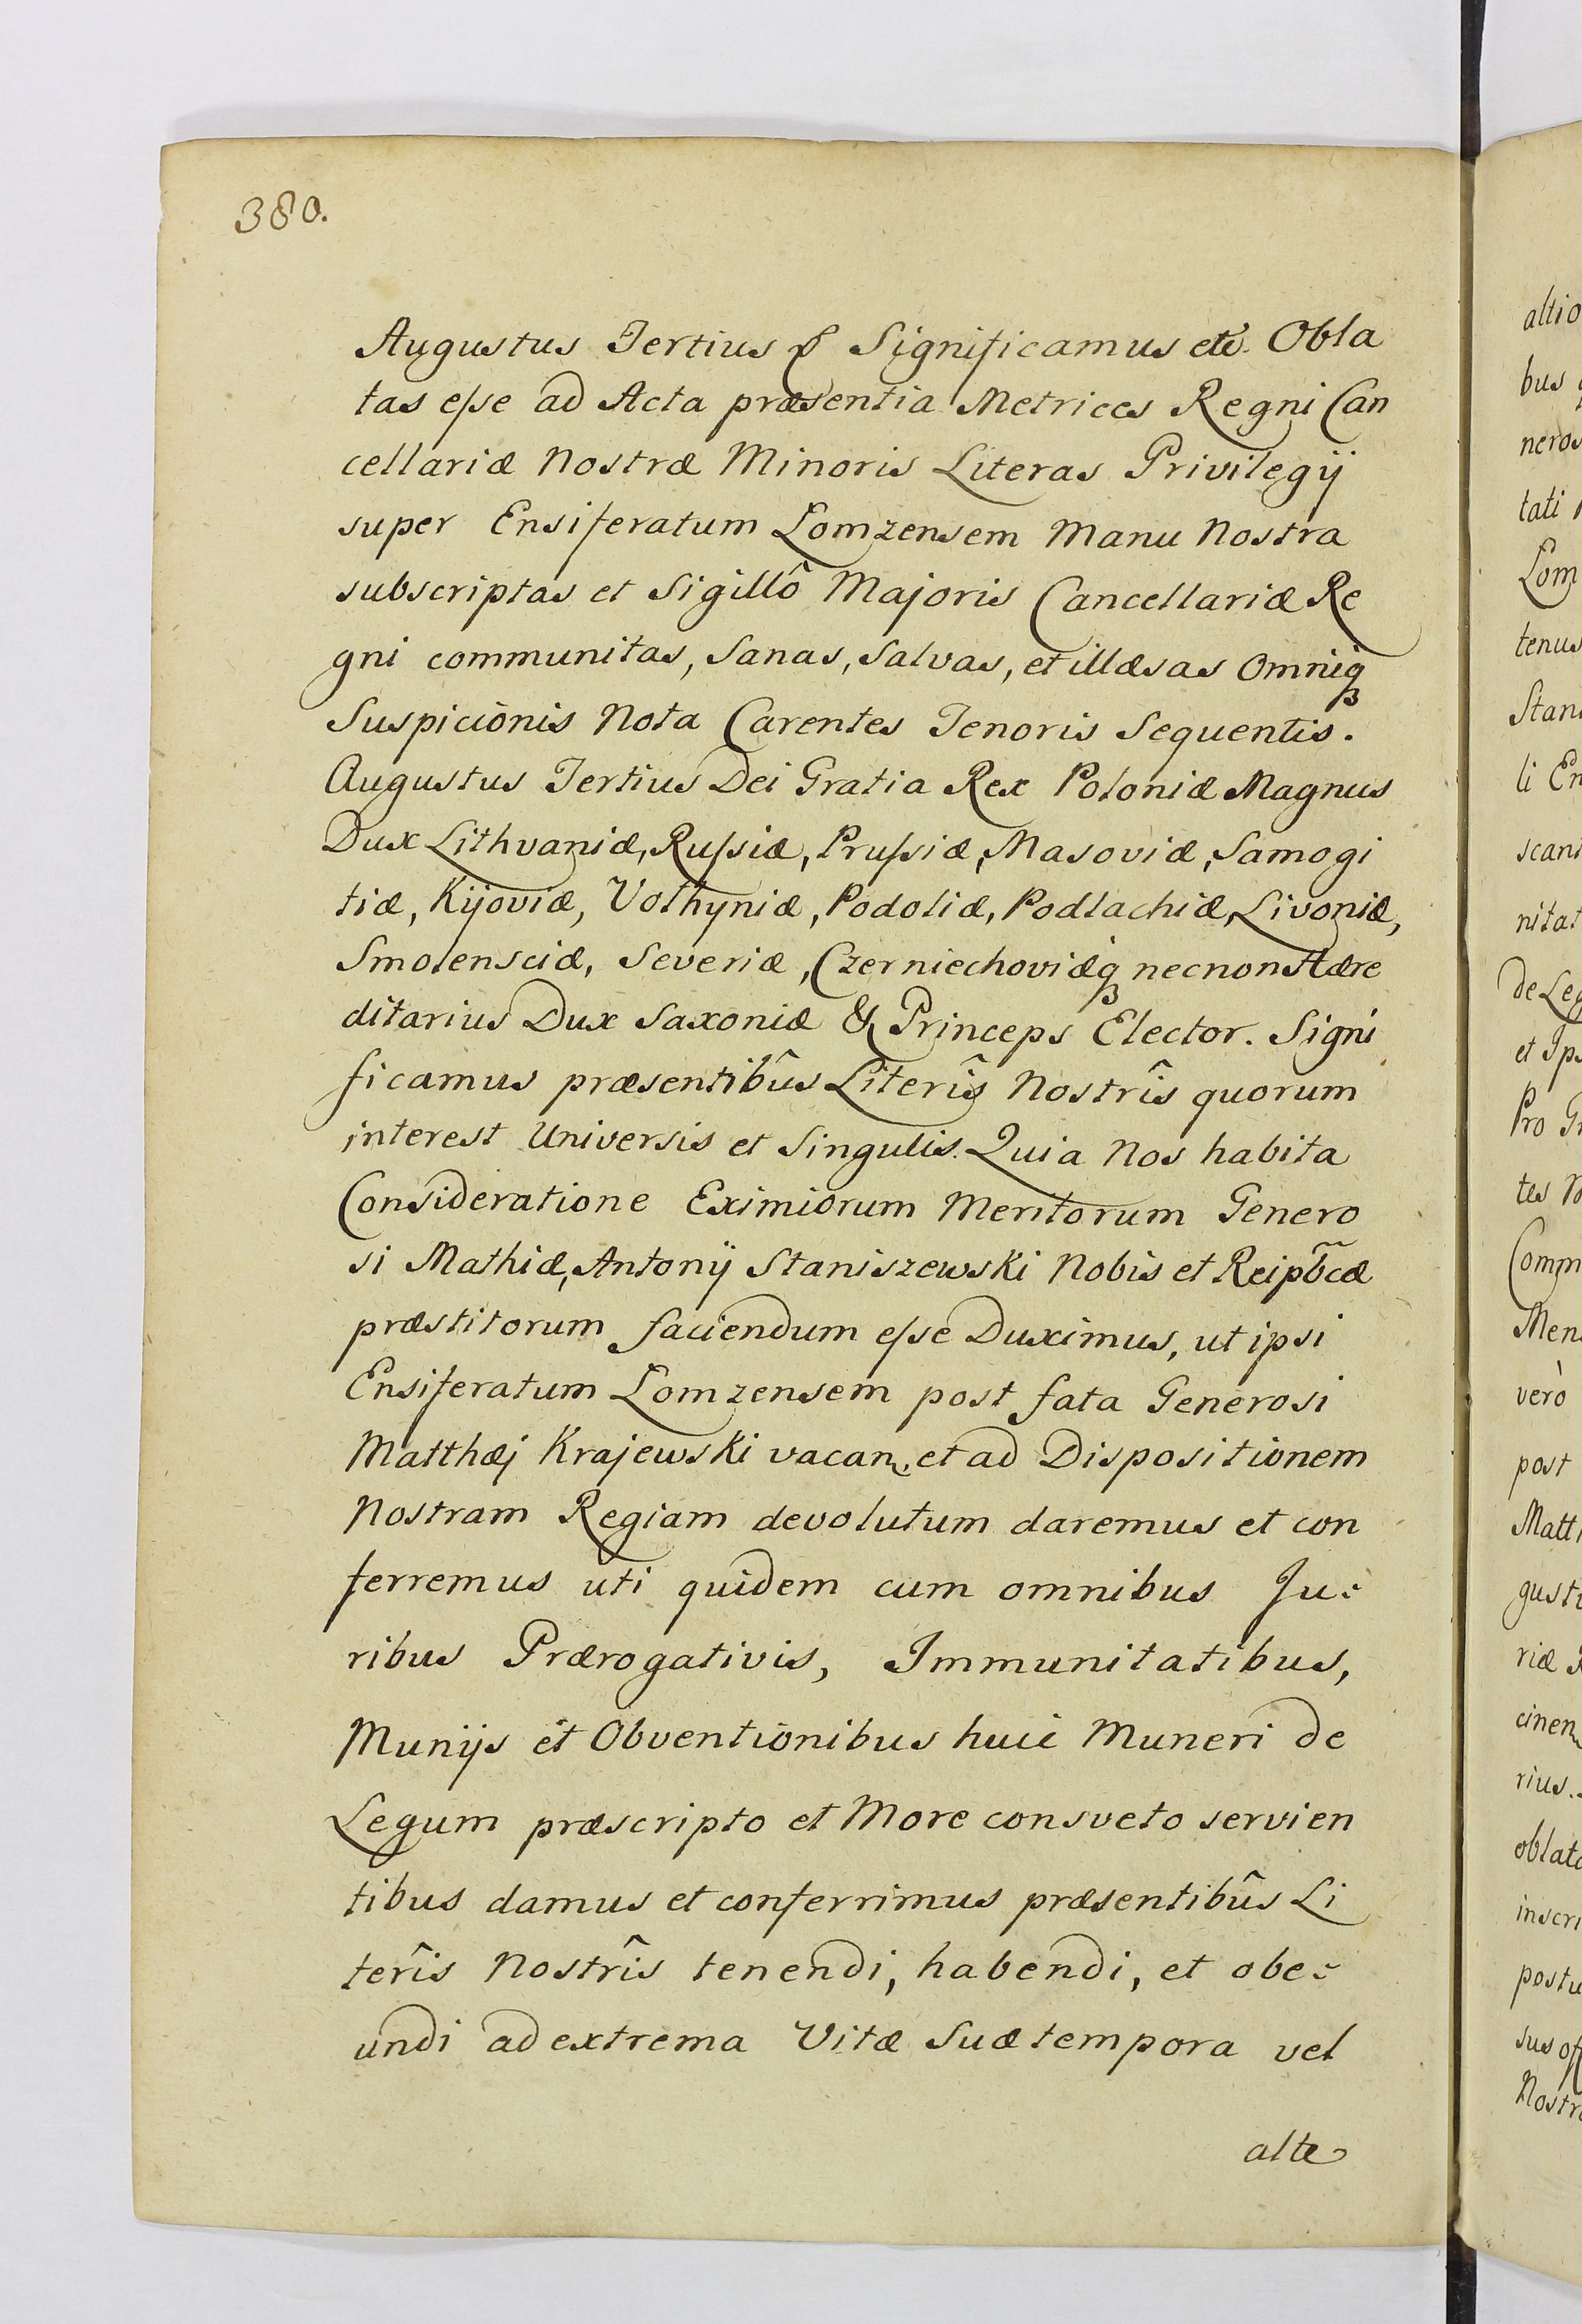 380.
Augustus Tertius & Significamus etc. Obla
tas esse ad Acta præsentia Metrices Regni Can
cellariæ Nostræ Minoris Literas Privilegij
super Ensiferatum Łomzensem Manu Nostra
subscriptas et Sigillô Majoris Cancellariæ Re
gni communitas, Sanas, Salvas, et illæsas Omniq
Suspicionis Nota Carentes Tenoris Sequentis.
Augustus Tertius Dei Gratia Rex Poloniæ Magnus
Dux Lithvaniæ, Russiæ, Prussiæ, Masoviæ, Samogi
tiæ, Kijoviæ, Volhyniæ, Podoliæ, Podlachiæ, Livoniæ,
Smolensciæ, Severiæ, Czerniechoviæq necnon Hære
ditarius Dux Saxoniæ & Princeps Elector. Signi
ficamus præsentibûs Literîs Nostrîs quorum
interest Universis et Singulis. Quia Nos habita
Consideratione Eximiorum Meritorum Genero
si Mathiæ, Antonij Staniszewski Nobis et Reipb̃cæ
præstitorum faciendum esse Duximus, ut ipsi
Ensiferatum Łomzensem post fata Generosi
Matthæj Krajewski vacan. et ad Dispositionem
Nostram Regiam devolutum daremus et con
ferremus uti quidem cum omnibus Ju=
ribus Prærogativis, Immunitatibus,
Munijs et Obventionibus huic Muneri de
Legum præscripto et More consveto servien
tibus damus et conferrimus præsentibûs Li
terîs Nostrîs tenendi, habendi, et obe=
undi ad extrema Vitæ Suæ tempora vel
alte
altio
bus
neros
tati
Łom
tenus
Stani
li En
scani
nitat
de Leg
et Ips
Pro Gr
tes
Comm
Men
verò
post
Matt
gusti
riæ
cinen
rius.
oblata
inscri
postu
sus off
Nostr